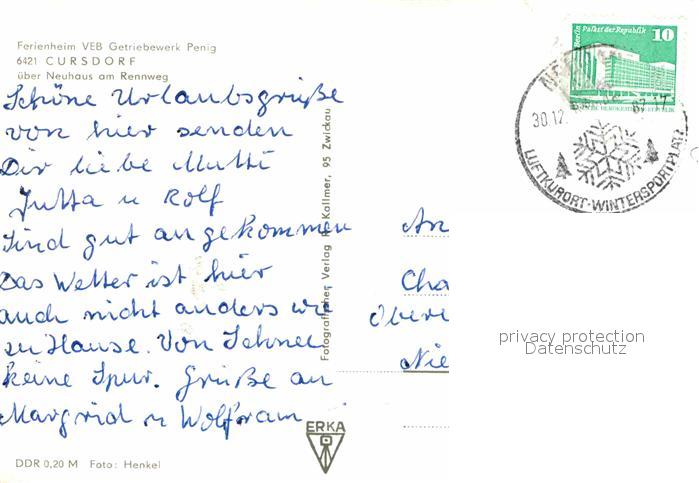 Ferienheim VEB Getriebewerk Penig
6421 CURSDORF
über Neuhaus am Rennweg
Schöne Urlaubsgrüße
von hier senden
Dir liebe Mutti
Jutta u Rolf
Sind gut angekommen
Das Wetter ist hier
auch nicht anders wie
zu Hause. Von Schnee
keine Spur. Grüße an
Margrid u Wolfram
DDR 0,20 M Foto: Henkel
Fotografischer Verlag Kallmer, 95 Zwickau
ERKA
Berlin Palast der Republik 10
30.12. 17
LUFTKURORT-WINTERSPORTPLATZ
An
Cha
Obere
Nie
privacy protection
Datenschutz